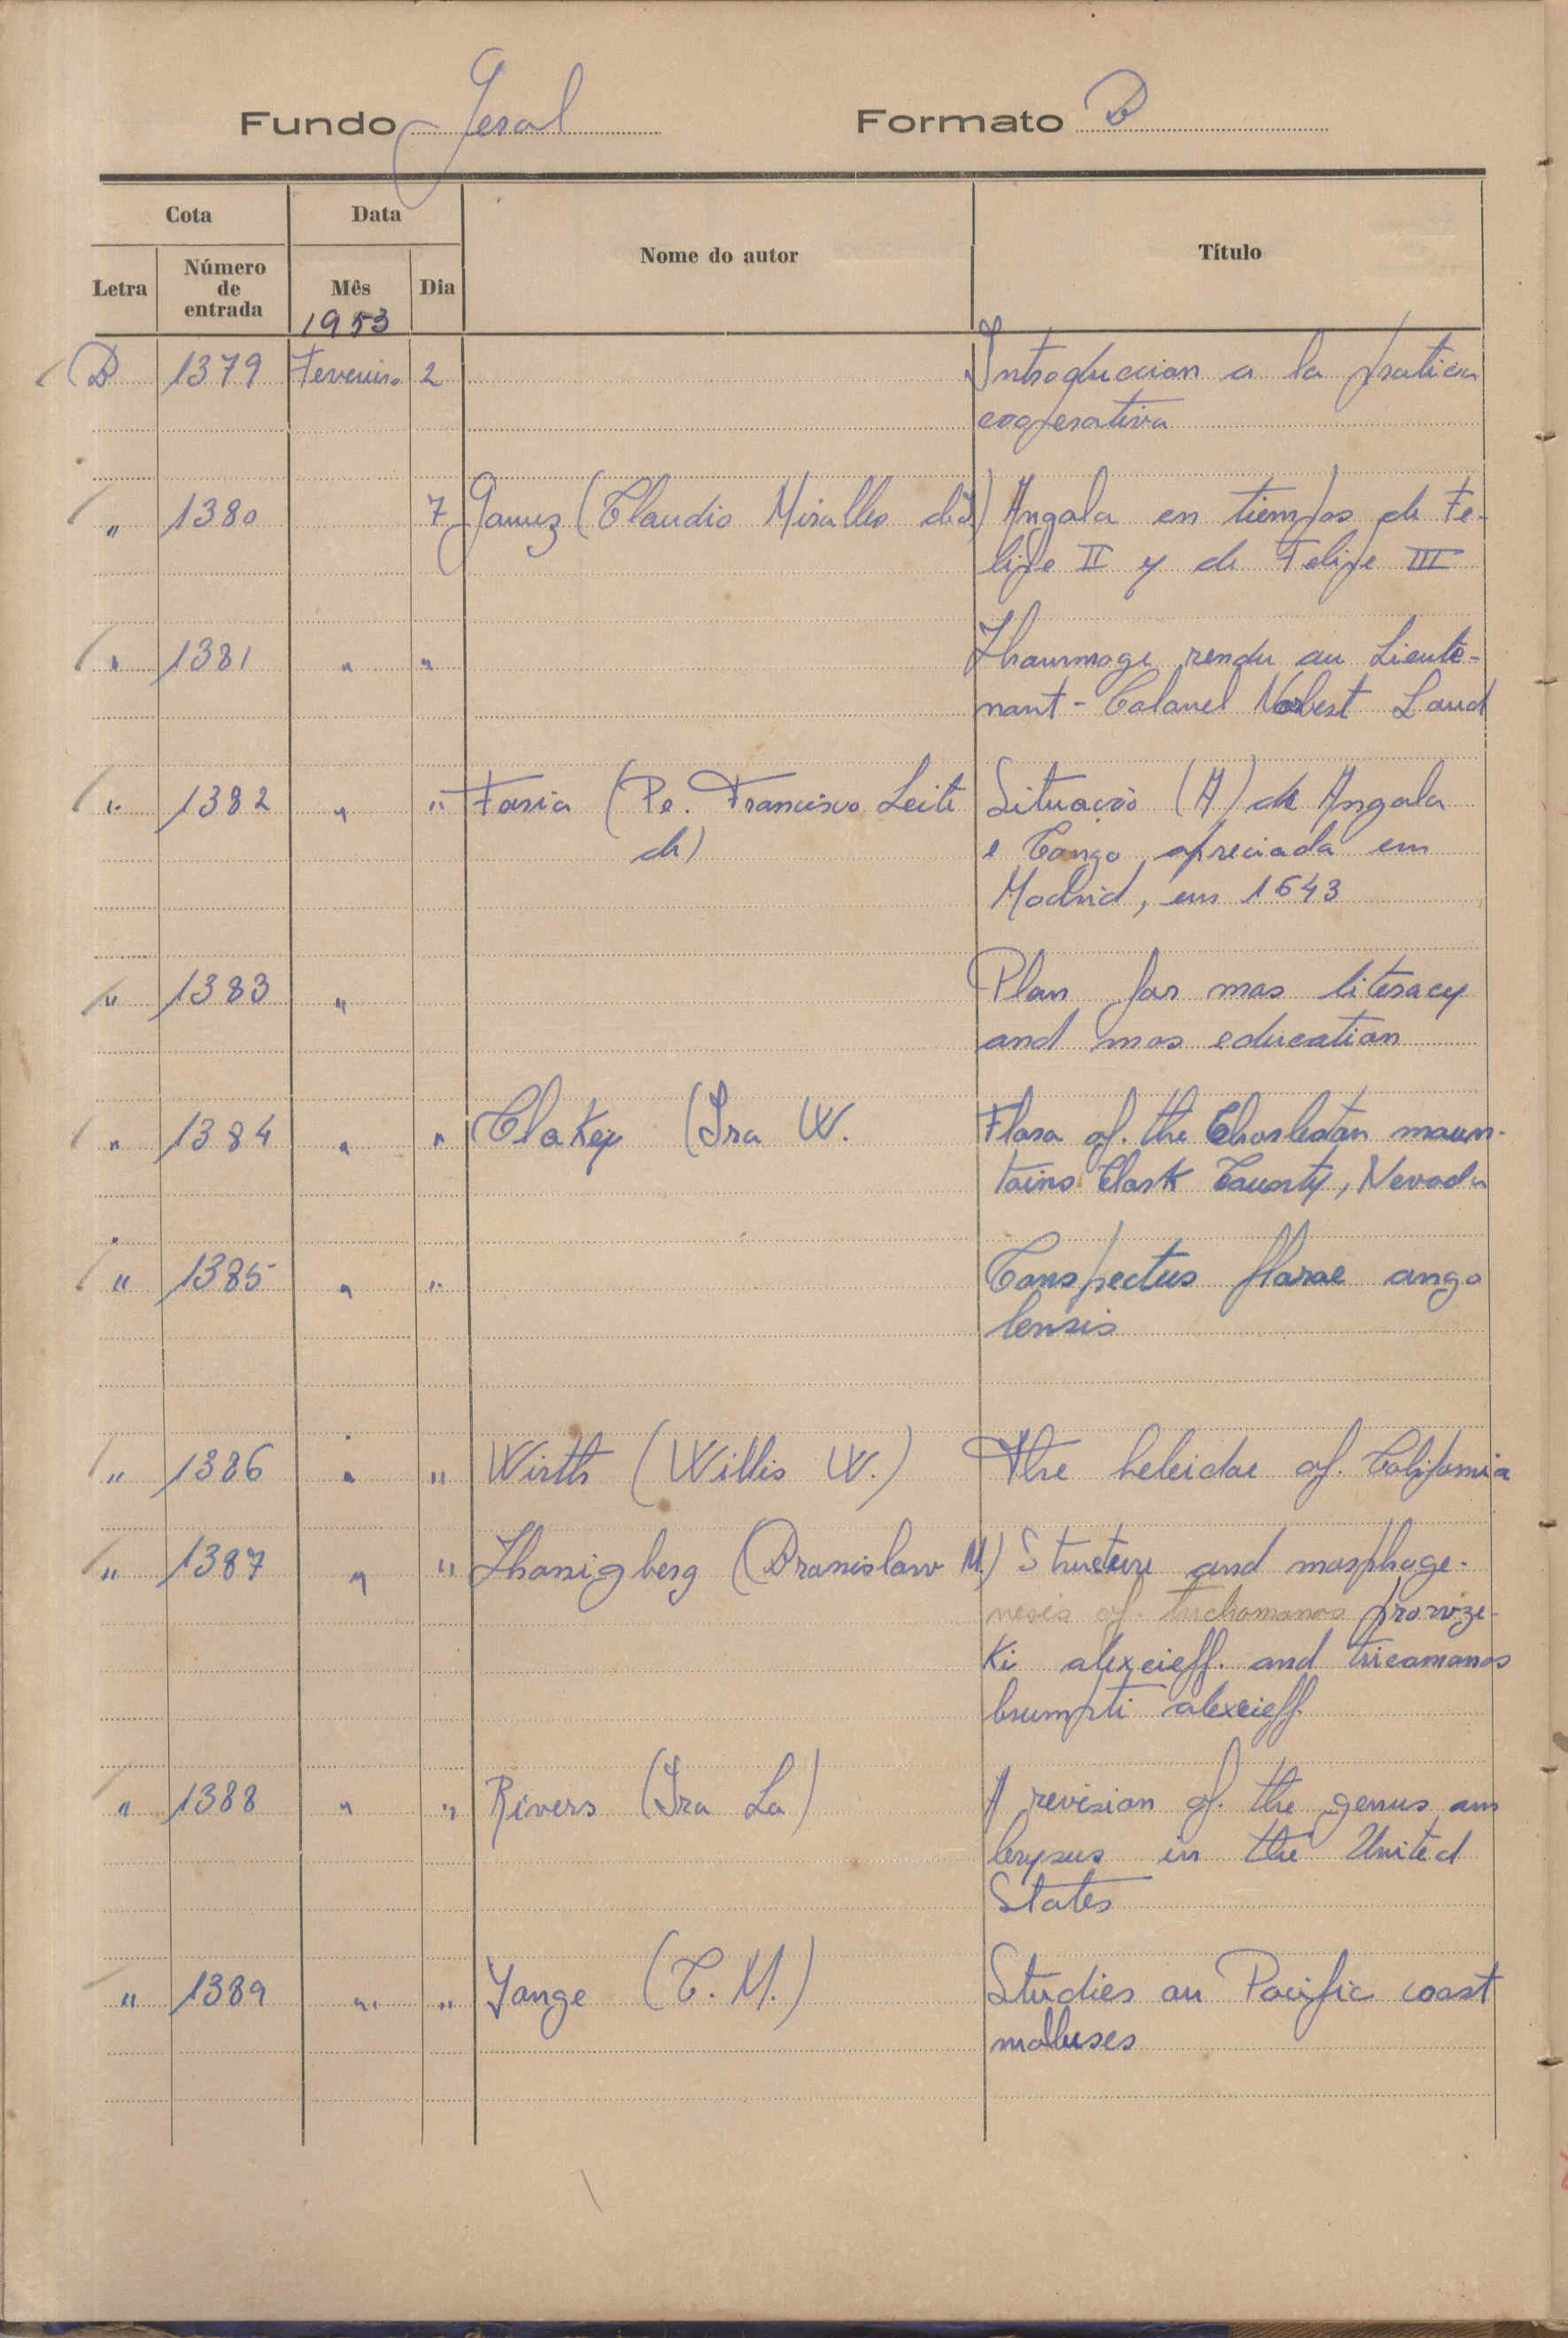 Fundo Geral Formato B
Cota Data Nome do autor Título
Letra Número de entrada Mês Dia
1953
B 1379 Fevereiro 2 Introduccion a la pratica
cooperativa
" 1380 7 (Claudio Miralles de Angola en tiempos de Fe-
lipe II y de Felipe III
" 1381 " " rendu au Lieute-
nant-Colonel Norbert Laud
" 1382 " " Faria (Pe. Francisco Leite Situação (A) de Angola
de) e Congo, apreciada em
Madrid, em 1643
" 1383 " Plan for mas literacy
and mas education
" 1384 " " Clokey (Ira W. Flora of. the Charlestan moun-
tains Clark County, Nevada
" 1385 " " Conspectus florae ango
lensis
" 1386 " " Wirth (Willis W.) The heleidae of. California
" 1387 " " (Branislaw M.) Structure and morphoge-
nesis of. trichomonas prowze-
Ki alexeieff. and tricomonas
brumpti alexeieff.
" 1388 " " Rivers (Ira La) A revision of. the genus am
brysus in the United
States
" 1389 " " Yonge (C. M.) Studies on Pacific coast
molluses